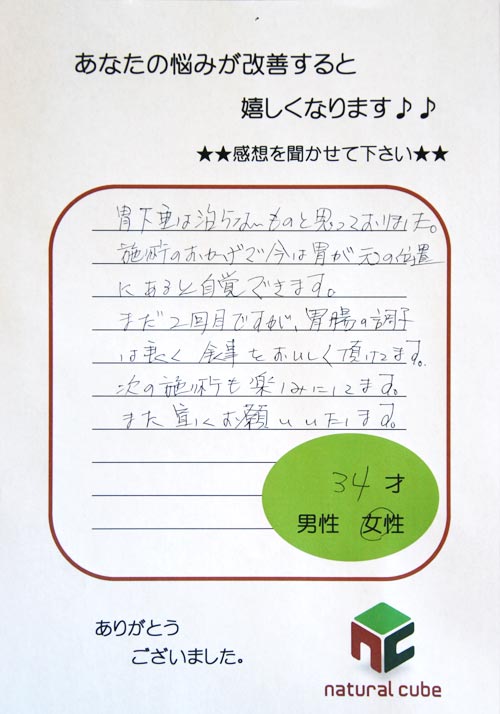 あなたの悩みが改善すると
嬉しくなります♪♪
★★感想を聞かせて下さい★★
胃下垂は治らないものと思っておりました。
施術のおかげで今は胃が元の位置
にあると自覚できます。
まだ2回目ですが、胃腸の調子
は良く食事をおいしく頂けてます。
次の施術も楽しみにしてます。
また宜しくお願いいたします。
34才
男性 女性
ありがとう
ございました。
nc
natural cube